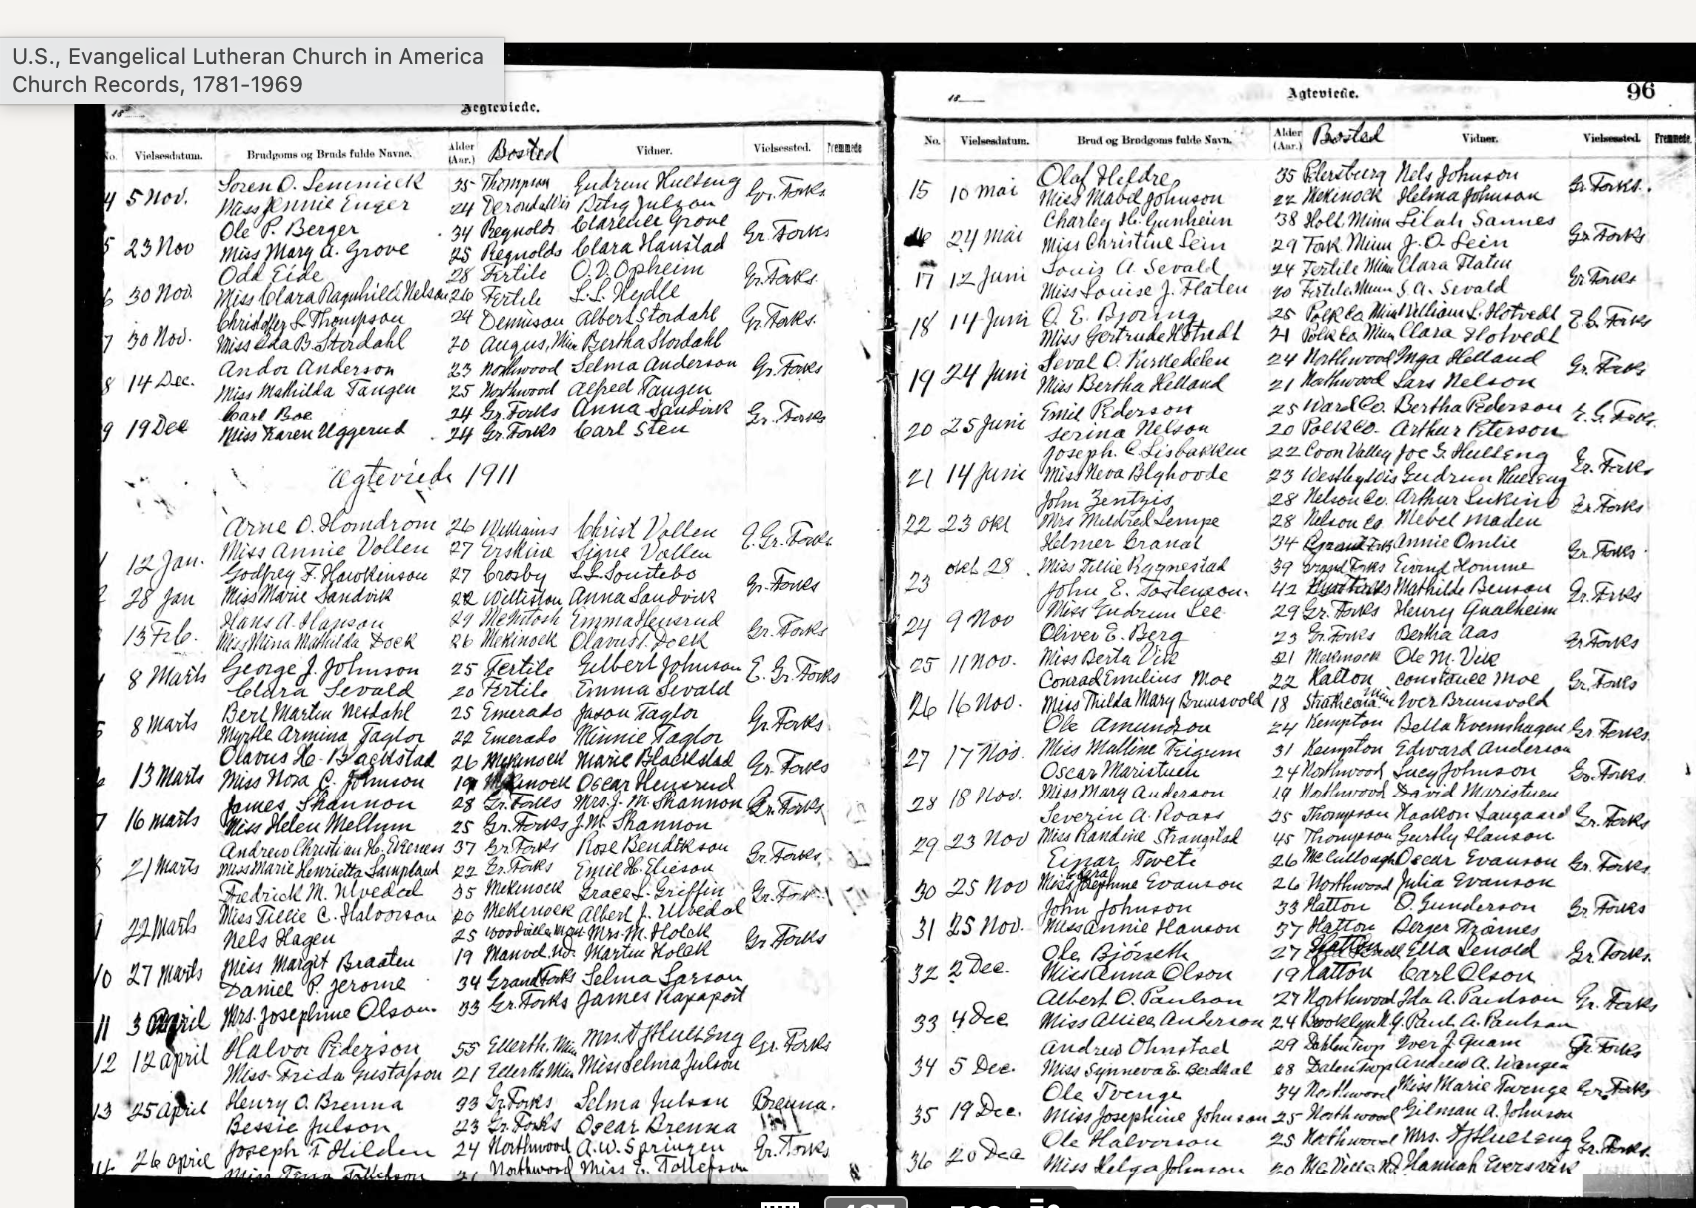 U.S., Evangelical Lutheran Church in America
Church Records, 1781-1969
Aegteviede.
No. Vielsesdatum. Brudgoms og Bruds fulde Navne. Alder (Aar.) Bosted Vidner. Vielsessted. Fremmede
4 5 Nov. Soren O. 35 Thompson Gudrun Gr. Forks
Miss Jennie Enger 24
Ole P. Berger 34 Reynolds Clarence Grove
5 23 Nov Miss Mary A. Grove 25 Reynolds Clara Hanstad Gr. Forks
Odd Eide 28 Fertile O. D. Opheim
30 Nov. Miss Clara Ragnhild Nelson 26 Fertile L. L. Gr. Forks
Christoffer S. Thompson 24 Dennison Albert Stordahl
7 30 Nov. Miss Ida B. Stordahl 20 Angus, Min Bertha Stordahl Gr. Forks.
Andor Anderson 23 Northwood Selma Anderson
8 14 Dec. Miss Mathilda Tangen 25 Northwood Alfred Tangen Gr. Forks
Carl Boe 24 Gr. Forks Anna Sandvik
9 19 Dec Miss Karen Uggerud 24 Gr. Forks Carl Sten Gr. Forks
Agteviede 1911
Arne O. Homdrom 26 Williams Christ Vollen
12 Jan. Miss Annie Vollen 27 Erskine Signe Vollen E. Gr. Forks
Godfrey F. Hawkinson 27 Crosby
28 Jan Miss Marie Sandvik 22 Williston Anna Sandvik Gr. Forks
Hans A. Hanson 29 McIntosh Emma
13 Feb. Miss Mina Mathilda Dock 26 Mekinock Olavus Dock Gr. Forks
George J. Johnson 25 Fertile Gilbert Johnson
8 Marts Clara Sevald 20 Fertile Emma Sevald E. Gr. Forks
Bert Martin Nesdahl 25 Emerado Jason Taylor
5 8 Marts Myrtle Armina Taylor 22 Emerado Minnie Taylor Gr. Forks
Olavus H. Blackstad 26 Mekinock Marie Blackstad
13 Marts Miss Nora C. Johnson 19 Mekinock Oscar Gr. Forks
James Shannon 28 Gr. Forks Mrs. J. M. Shannon
7 16 marts Miss Helen Mellum 25 Gr. Forks J. M. Shannon Gr. Forks
Andrew Christian H. 37 Gr. Forks Rose Bendikson
8 21 Marts Miss Marie Henrietta 22 Gr. Forks Emil H. Elieson Gr. Forks
Fedrick M. Ulvedal 35 Mekinock Grace L. Griffin
9 22 Marts Miss Tillie C. Halvorson 20 Mekinock Albert J. Ulvedal Gr. Forks
Nels Hagen 25 Mrs. M. Holck
10 27 Marts Miss Margit Braaten 19 Manvel N.D. Martin Holck Gr. Forks
Daniel P. Jerome 34 Grand Forks Selma Larson
11 3 April Mrs. Josephine Olson. 33 Gr. Forks James Rapaport
Halvor Pederson 55 Mrs.
12 12 april Miss Frida Gustafson 21 Miss Selma Julson Gr. Forks
Henry O. Brenna 33 Gr. Forks Selma Julson
13 25 April Bessie Julson 23 Gr. Forks Oscar Brenna Brenna.
Joseph T. Hilden 24 Northwood A. W. Springen
26 april Miss Tena Tollefson 21 Northwood Miss E. Tollefson Gr. Forks
Agteviede. 96
No. Vielsesdatum. Brud og Brudgoms fulde Navn. Alder (Aar.) Bosted Vidner. Vielsessted. Fremmede.
Olaf Hildre 35 Petersburg Nels Johnson
15 10 mai Miss Mabel Johnson 22 Mekinock Helma Johnson Gr. Forks.
Charley H. Gunheim 38 Holt Minn Lilah Sannes
16 24 Mai Miss Christine Lein 29 Minn J. O. Lein Gr. Forks
Louis A. Sevald 24 Fertile Minn Clara Flaten
17 12 Juni Miss Louise J. Flaten 20 Fertile Minn S. A. Sevald Gr. Forks
O. E. Bjoring 25 Polk Co. Minn William L. Hotvedt
18 14 Juni Miss Gertrude Hotvedt 21 Polk Co. Minn Clara Hotvedt E. G. Forks
Seval O. 24 Northwood Inga Helland
19 24 Juni Miss Bertha Helland 21 Northwood Lars Nelson Gr. Forks
Emil Pederson 25 Ward Co. Bertha Pederson
20 25 Juni Serina Nelson 20 Polk Co. Arthur Peterson E. G. Forks.
Joseph C. Lisbakken 22 Coon Valley Joe G.
21 14 Juni Miss Neva 23 Westby Wis Gudrun Gr. Forks
John 28 Nelson Co. Arthur
22 23 okt Mrs Mildred Lempe 28 Nelson Co. Mebel Maden Gr. Forks
Helmer Granat 34 Annie Omlie
23 okt 28 Miss Tillie Rognestad 39 Grand Forks Eivind Homme Gr. Forks
John E. Tostenson. 42 Mathilde Benson
24 9 Nov Miss Gudrun Lee 29 Gr. Forks Henry Gr. Forks
Oliver E. Berg 23 Gr. Forks Bertha Aas
25 11 Nov. Miss Berta Vik 21 Mekinock Ole M. Vik Gr Forks
Conrad Emilius Moe 22 Hatton Constance Moe
26 16 Nov. Miss Thilda Mary Brunsvold 18 Strathcona Minn Iver Brunsvold Gr. Forks
Ole Amundson 24 Kempton Bella Kvernshagen
27 17 Nov. Miss Malline Teigum 31 Kempton Edward Anderson Gr. Forks.
Oscar Maristuen 24 Northwood Lucy Johnson
28 18 Nov. Miss Mary Anderson 19 Northwood David Maristuen Gr. Forks.
Severin A. Roass 35 Thompson Haakon
29 23 Nov Miss Randine 45 Thompson Hanson Gr. Forks
Einar Tveti 26 McCullough Oscar Evanson
30 25 Nov Miss Josephine Evanson 26 Northwood Julia Evanson Gr. Forks.
John Johnson 33 Hatton O. Gunderson
31 25 Nov. Miss Annie Hanson 37 Hatton Gr Forks
Ole Bjorseth 27 Ella
32 2 Dec. Miss Anna Olson 19 Hatton Carl Olson Gr. Forks.
Albert O. Paulson 27 Northwood Ida A. Paulson
33 4 Dec Miss Allice Anderson 24 Brooklyn N.Y. Paul A. Paulson Gr. Forks
Andrew Ohnstad 29 Dahlen Twp Iver J. Quam
34 5 Dec. Miss Synneva E. Berdhal 28 Dalen Twp Andrew A. Wangen Gr Forks
Ole Tvenge 34 Northwood Miss Marie Twenge
35 19 Dec. Miss Josephine Johnson 25 Northwood Gilman A. Johnson Gr. Forks
Ole Halvorson 25 Northwood Mrs.
36 20 Dec Miss Helga Johnson 20 Hannah Gr. Forks.